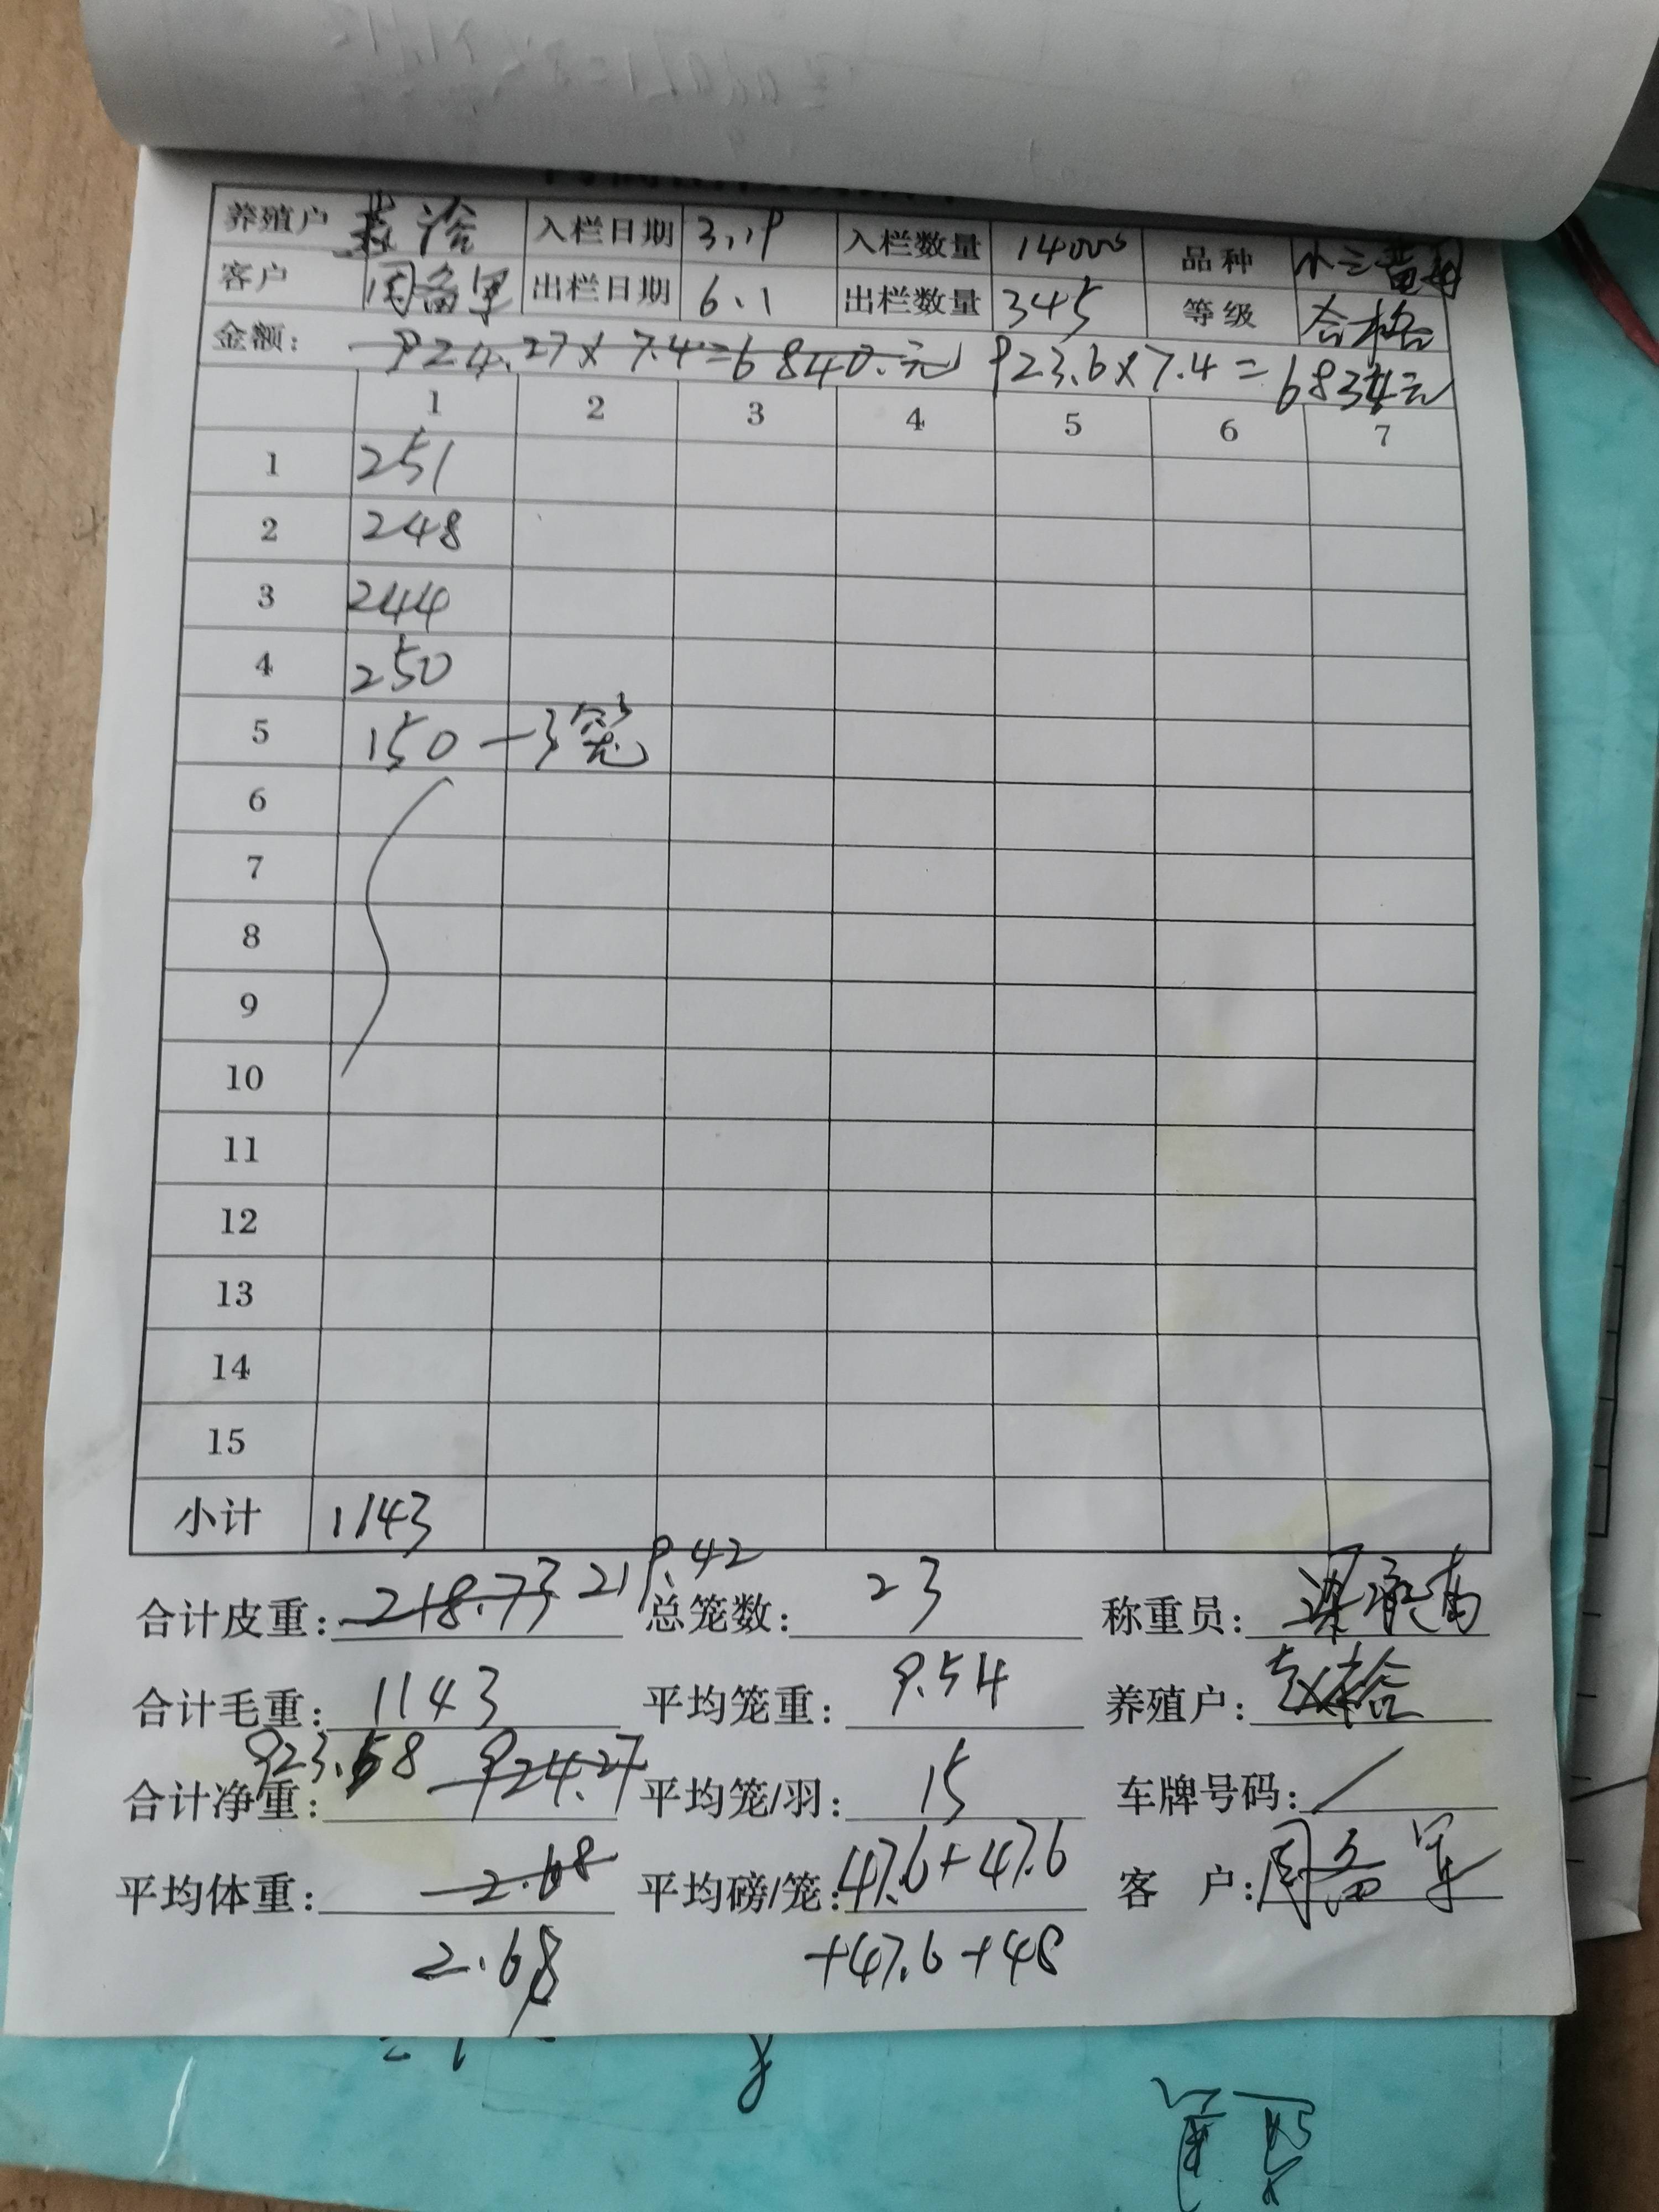 养殖户 入栏日期 3.19 入栏数量 14000 品种
客户 周备军 出栏日期 6.1 出栏数量 345 等级 合格
金额: 924.27×7.4=6840.元 923.6×7.4=6834元
1 2 3 4 5 6 7
1 251
2 248
3 244
4 250
5 150 — 3笼
6
7
8
9
10
11
12
13
14
15
小计 1143
合计皮重: 218.73 219.42 总笼数: 23 称重员:
合计毛重: 1143 平均笼重: 9.54 养殖户:
合计净重: 923.58 924.27 平均笼/羽: 15 车牌号码: /
平均体重: 2.68 平均磅/笼: 47.6+47.6 客 户: 周备军
2.68 +47.6+48